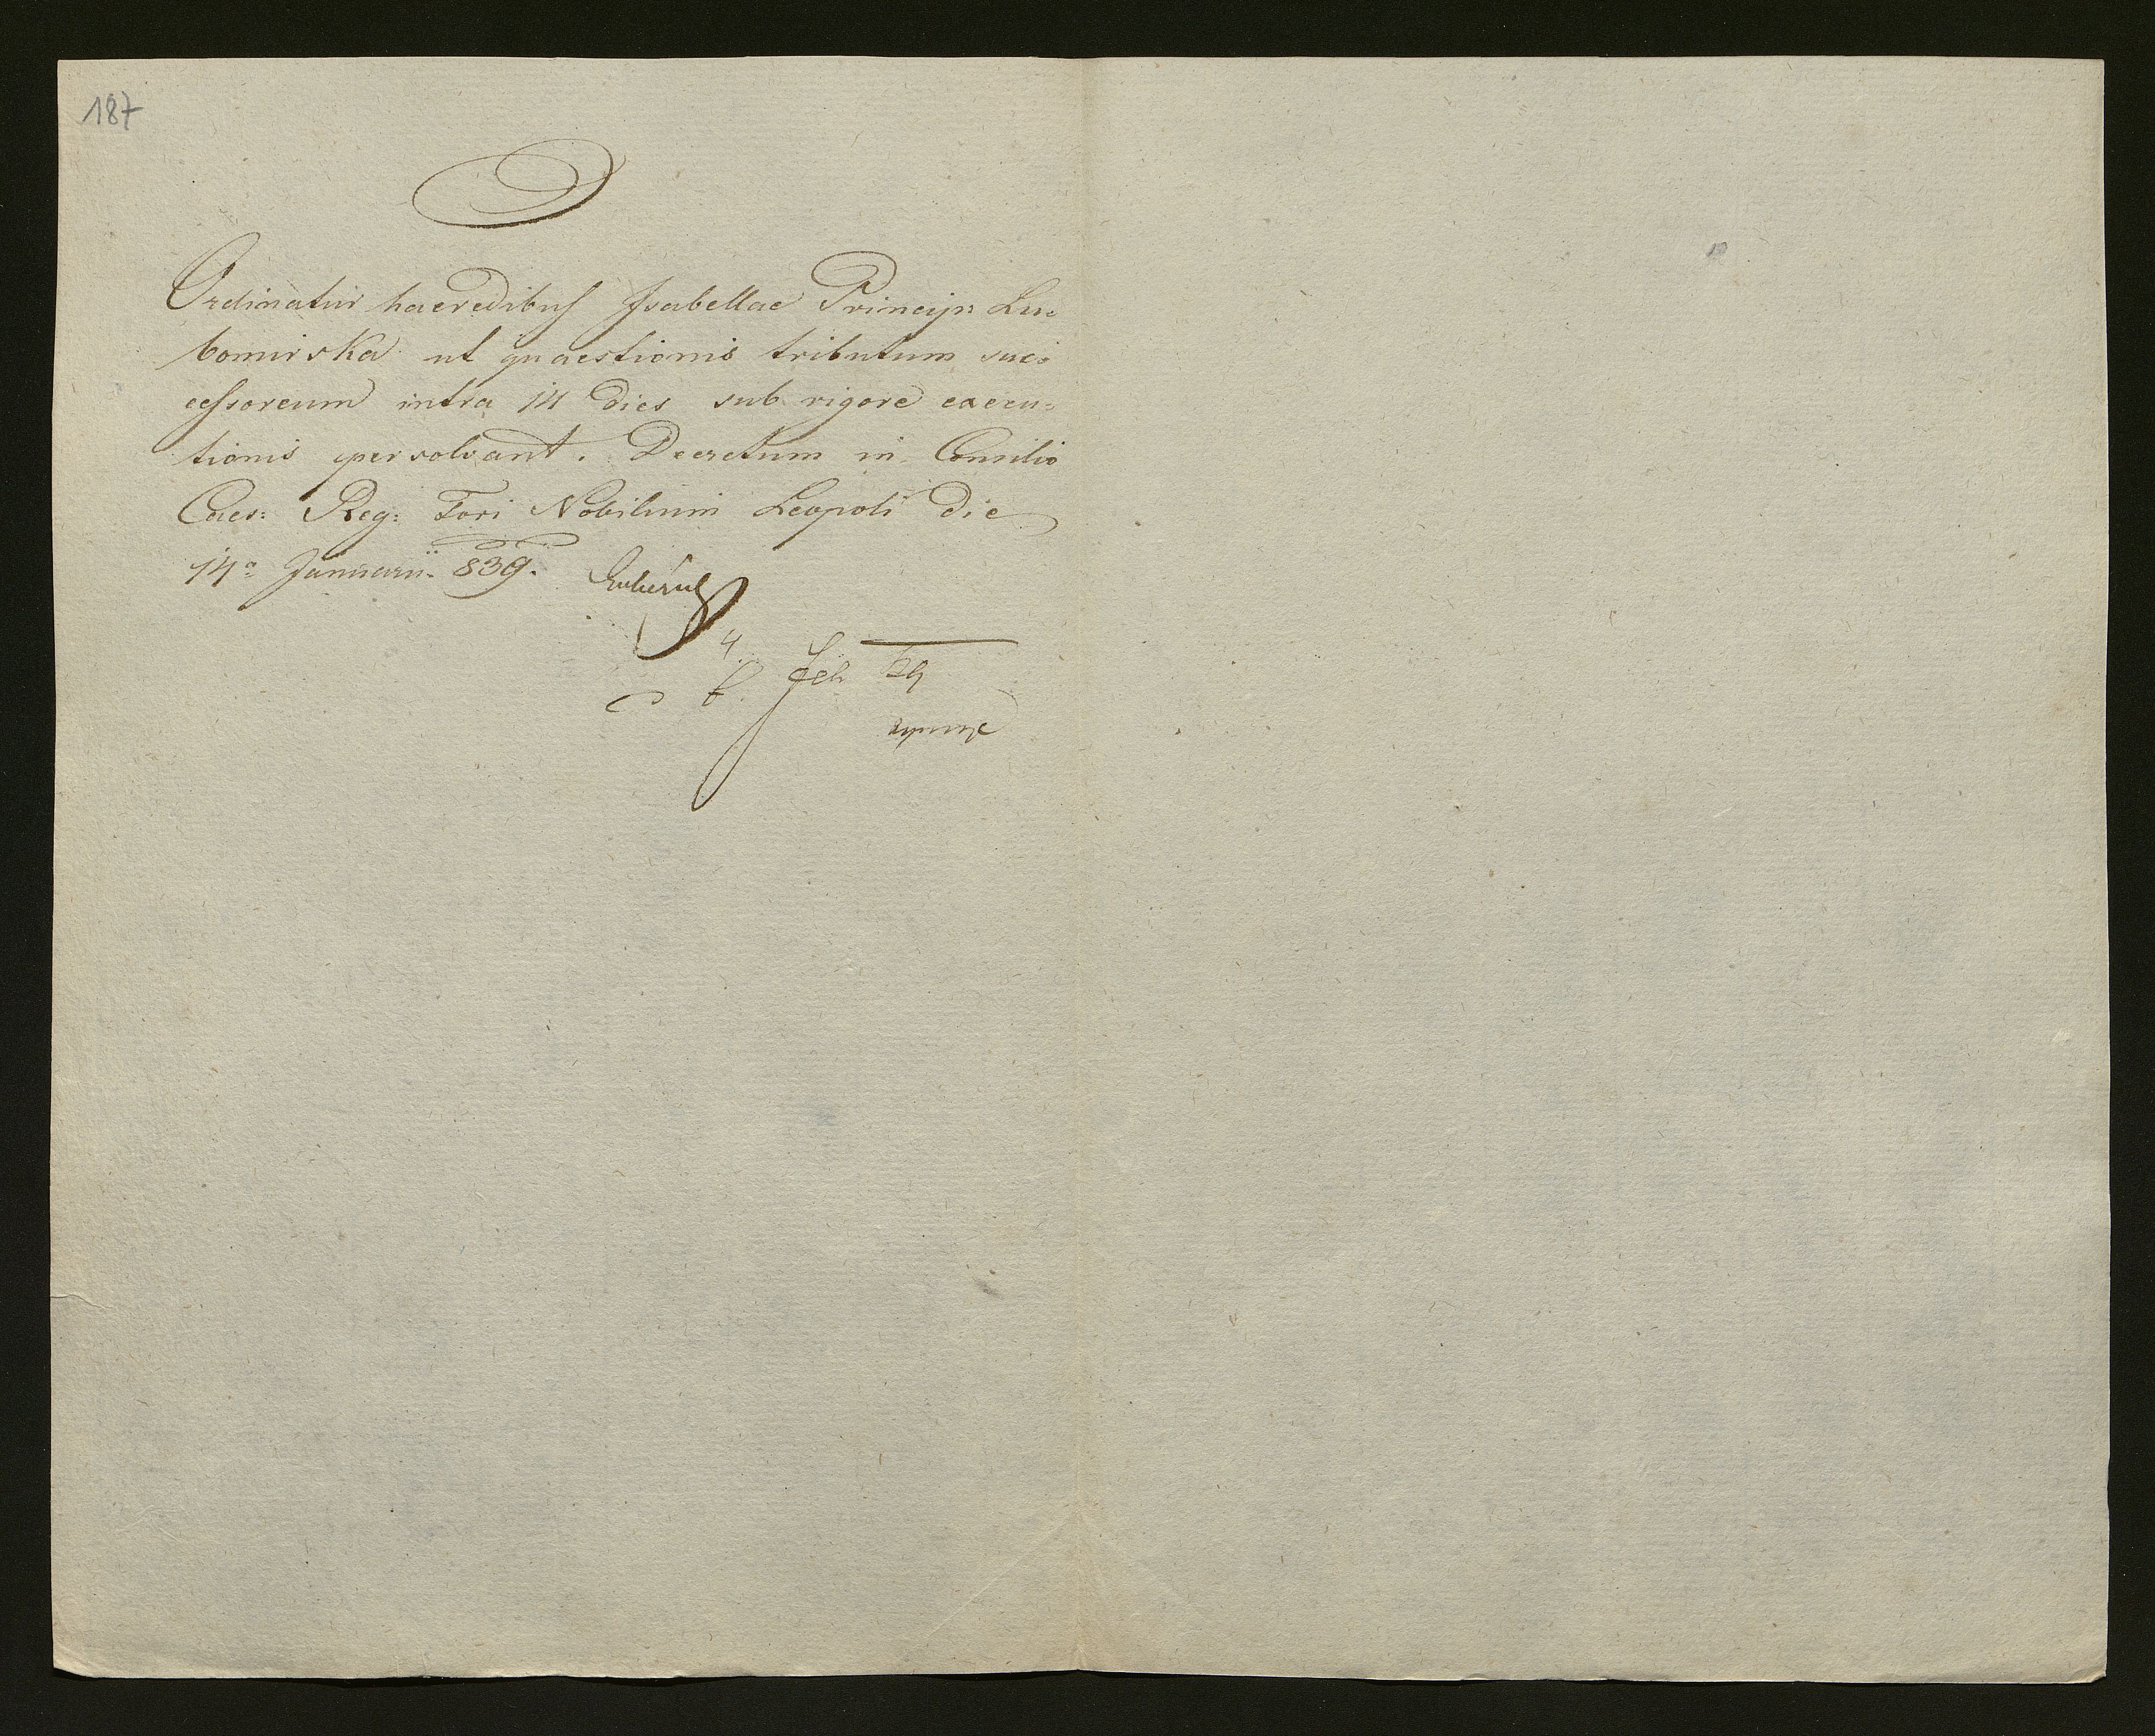 187
Ordinatur haeredibus Isabellae Princip: Lu=
bomirska ut quaestionis tributum suc=
cessoreum intra 14 dies sub rigore execu=
tionis persolvant. Decretum in Consilio
Caes: Reg: Fori Nobilium Leopoli die
14a Januarii. 839.
4 Feb